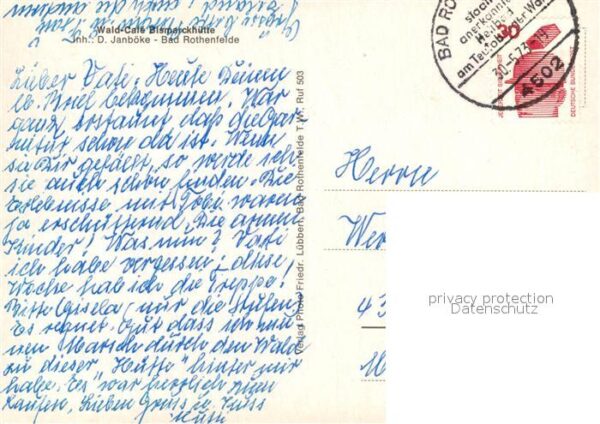 Wald-Café Bismarckhütte
Inh.: D. Janböke - Bad Rothenfelde
Lieber Vati! Heute Deinen
lb. Brief bekommen. War
ganz erstaunt daß die Gar-
nitur schon da ist. Wenn
sie Dir gefällt, so werde ich
sie auch schön finden. Die
Erlebnisse mit waren
ja erschütternd. Die armen
Kinder! Was nun? Vati
ich habe vergessen: diese
Woche hab ich die Treppe!
Bitte Gisela, nur die Stufen!
Es regnet. Gut dass ich mei-
nen Marsch durch den Wald
zu dieser "Hütte" hinter mir
habe. Es war herrlich zum
Laufen. Lieben Gruss u. Kuss
Verlag Photo Friedr. Lübbert, Bad Rothenfelde T.W. Ruf 503
BAD RO
staatl
anerkannte
Heilbad
am Teutoburger Wald
30.-5.73
4502
30
DEUTSCHE BUNDESPOST
Herrn
We
43
M
privacy protection
Datenschutz